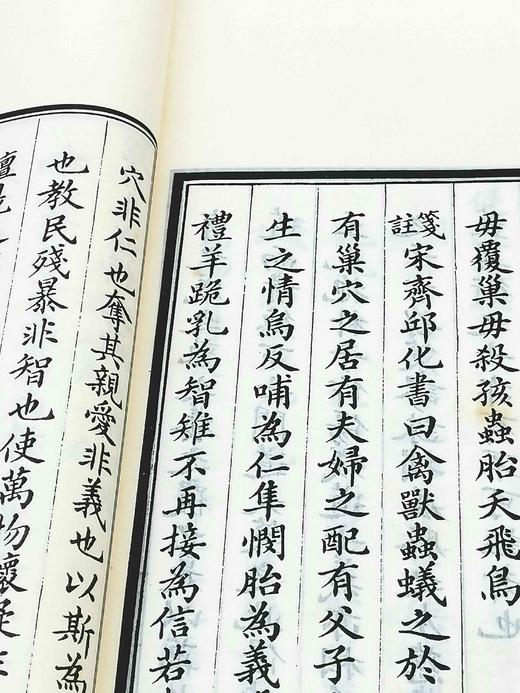 毋覆巢毋殺孩蟲胎夭飛鳥
箋註宋齊邱化書曰禽獸蟲蟻之於
有巢穴之居有夫婦之配有父子
生之情烏反哺為仁隼憫胎為義
禮羊跪乳為智雉不再接為信若
穴非仁也奪其親愛非義也以斯為
也教民殘暴非智也使萬物懷